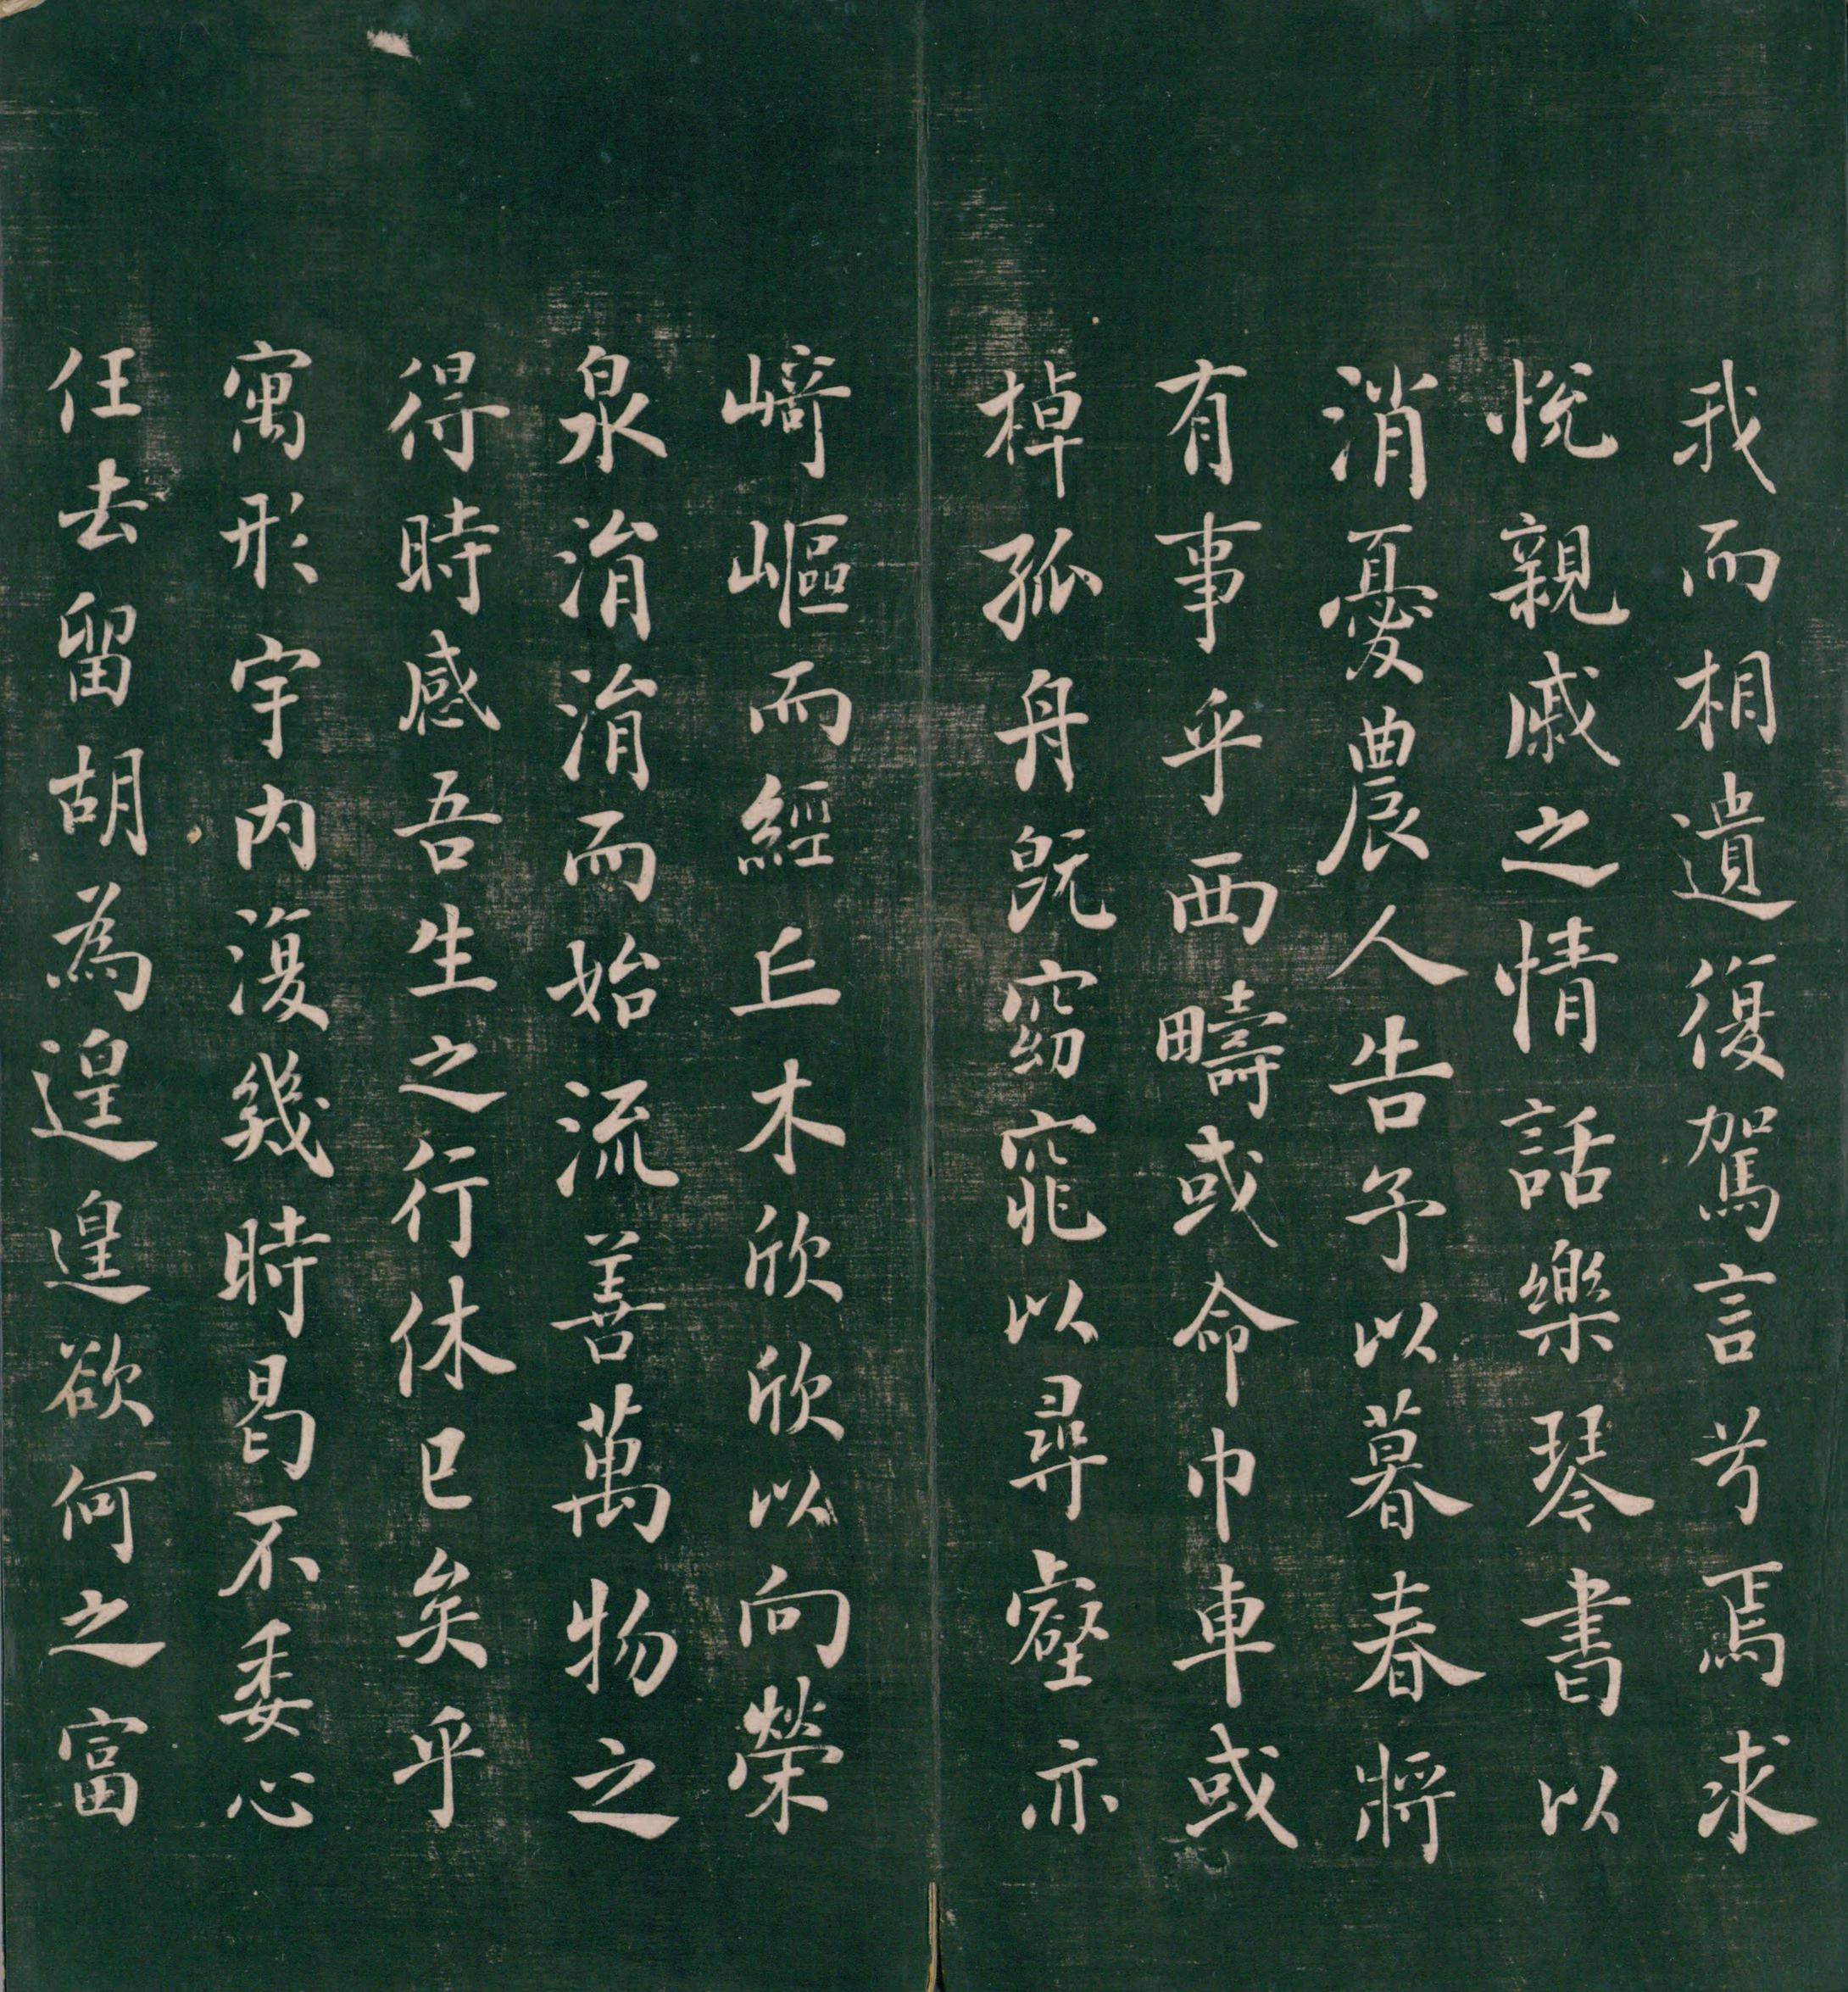 我而相遺復駕言兮焉求
悅親戚之情話樂琴書以
消憂農人告予以暮春將
有事乎西疇或命巾車或
棹孤舟旣窈窕以尋壑亦
崎嶇而經丘木欣欣以向榮
泉涓涓而始流善萬物之
得時感吾生之行休已矣乎
寓形宇內復幾時曷不委心
任去留胡為遑遑欲何之富